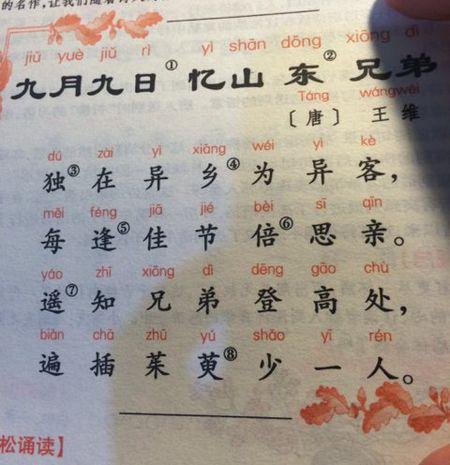 的名作，让我们随着诗人
jiǔ yuè jiǔ rì yì shān dōng xiōng dì
九月九日①忆山东②兄弟
Táng wángwéi
〔唐〕 王维
dú zài yì xiāng wéi yì kè
独③在异乡④为异客，
měi féng jiā jié bèi sī qīn
每逢⑤佳节倍⑥思亲。
yáo zhī xiōng dì dēng gāo chù
遥⑦知兄弟登高处，
biàn chā zhū yú shǎo yī rén
遍插茱萸⑧少一人。
松诵读】